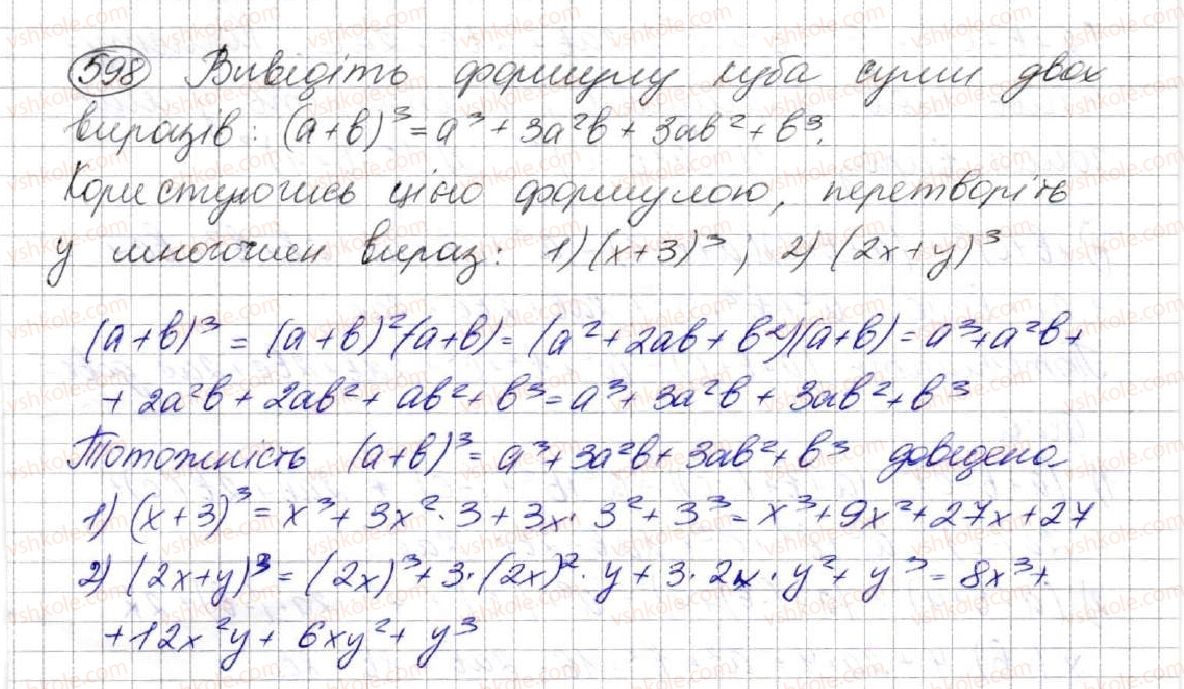 598 Виведіть формулу куба суми двох
виразів: (a+b)³=a³+3a²b+3ab²+b³.
Користуючись цією формулою, перетворіть
у многочлен вираз: 1)(x+3)³; 2)(2x+y)³
(a+b)³=(a+b)²·(a+b)=(a²+2ab+b²)(a+b)=a³+a²b+
+2a²b+2ab²+ab²+b³=a³+3a²b+3ab²+b³
Тотожність (a+b)³=a³+3a²b+3ab²+b³ доведено
1)(x+3)³=x³+3x²·3+3x·3²+3³=x³+9x²+27x+27
2)(2x+y)³=(2x)³+3·(2x)²·y+3·2x·y²+y³=8x³+
+12x²y+6xy²+y³